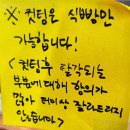 ※ 컷팅은 식빵만
가능합니다!
< 컷팅후 탈각되는
부분에 대해 항의가
많아 더이상 잘라드리지
않습니다>